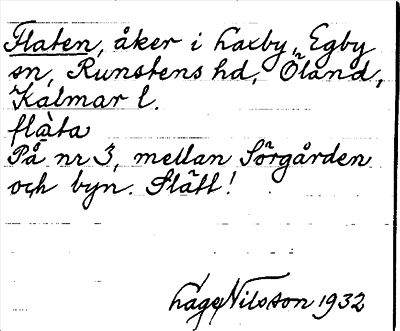 Flaten, åker i Laxby, Egby
sn, Runstens hd, Öland,
Kalmar l.
flàta
På nr 3, mellan Sörgården
och byn. Slätt!
Nilsson 1932